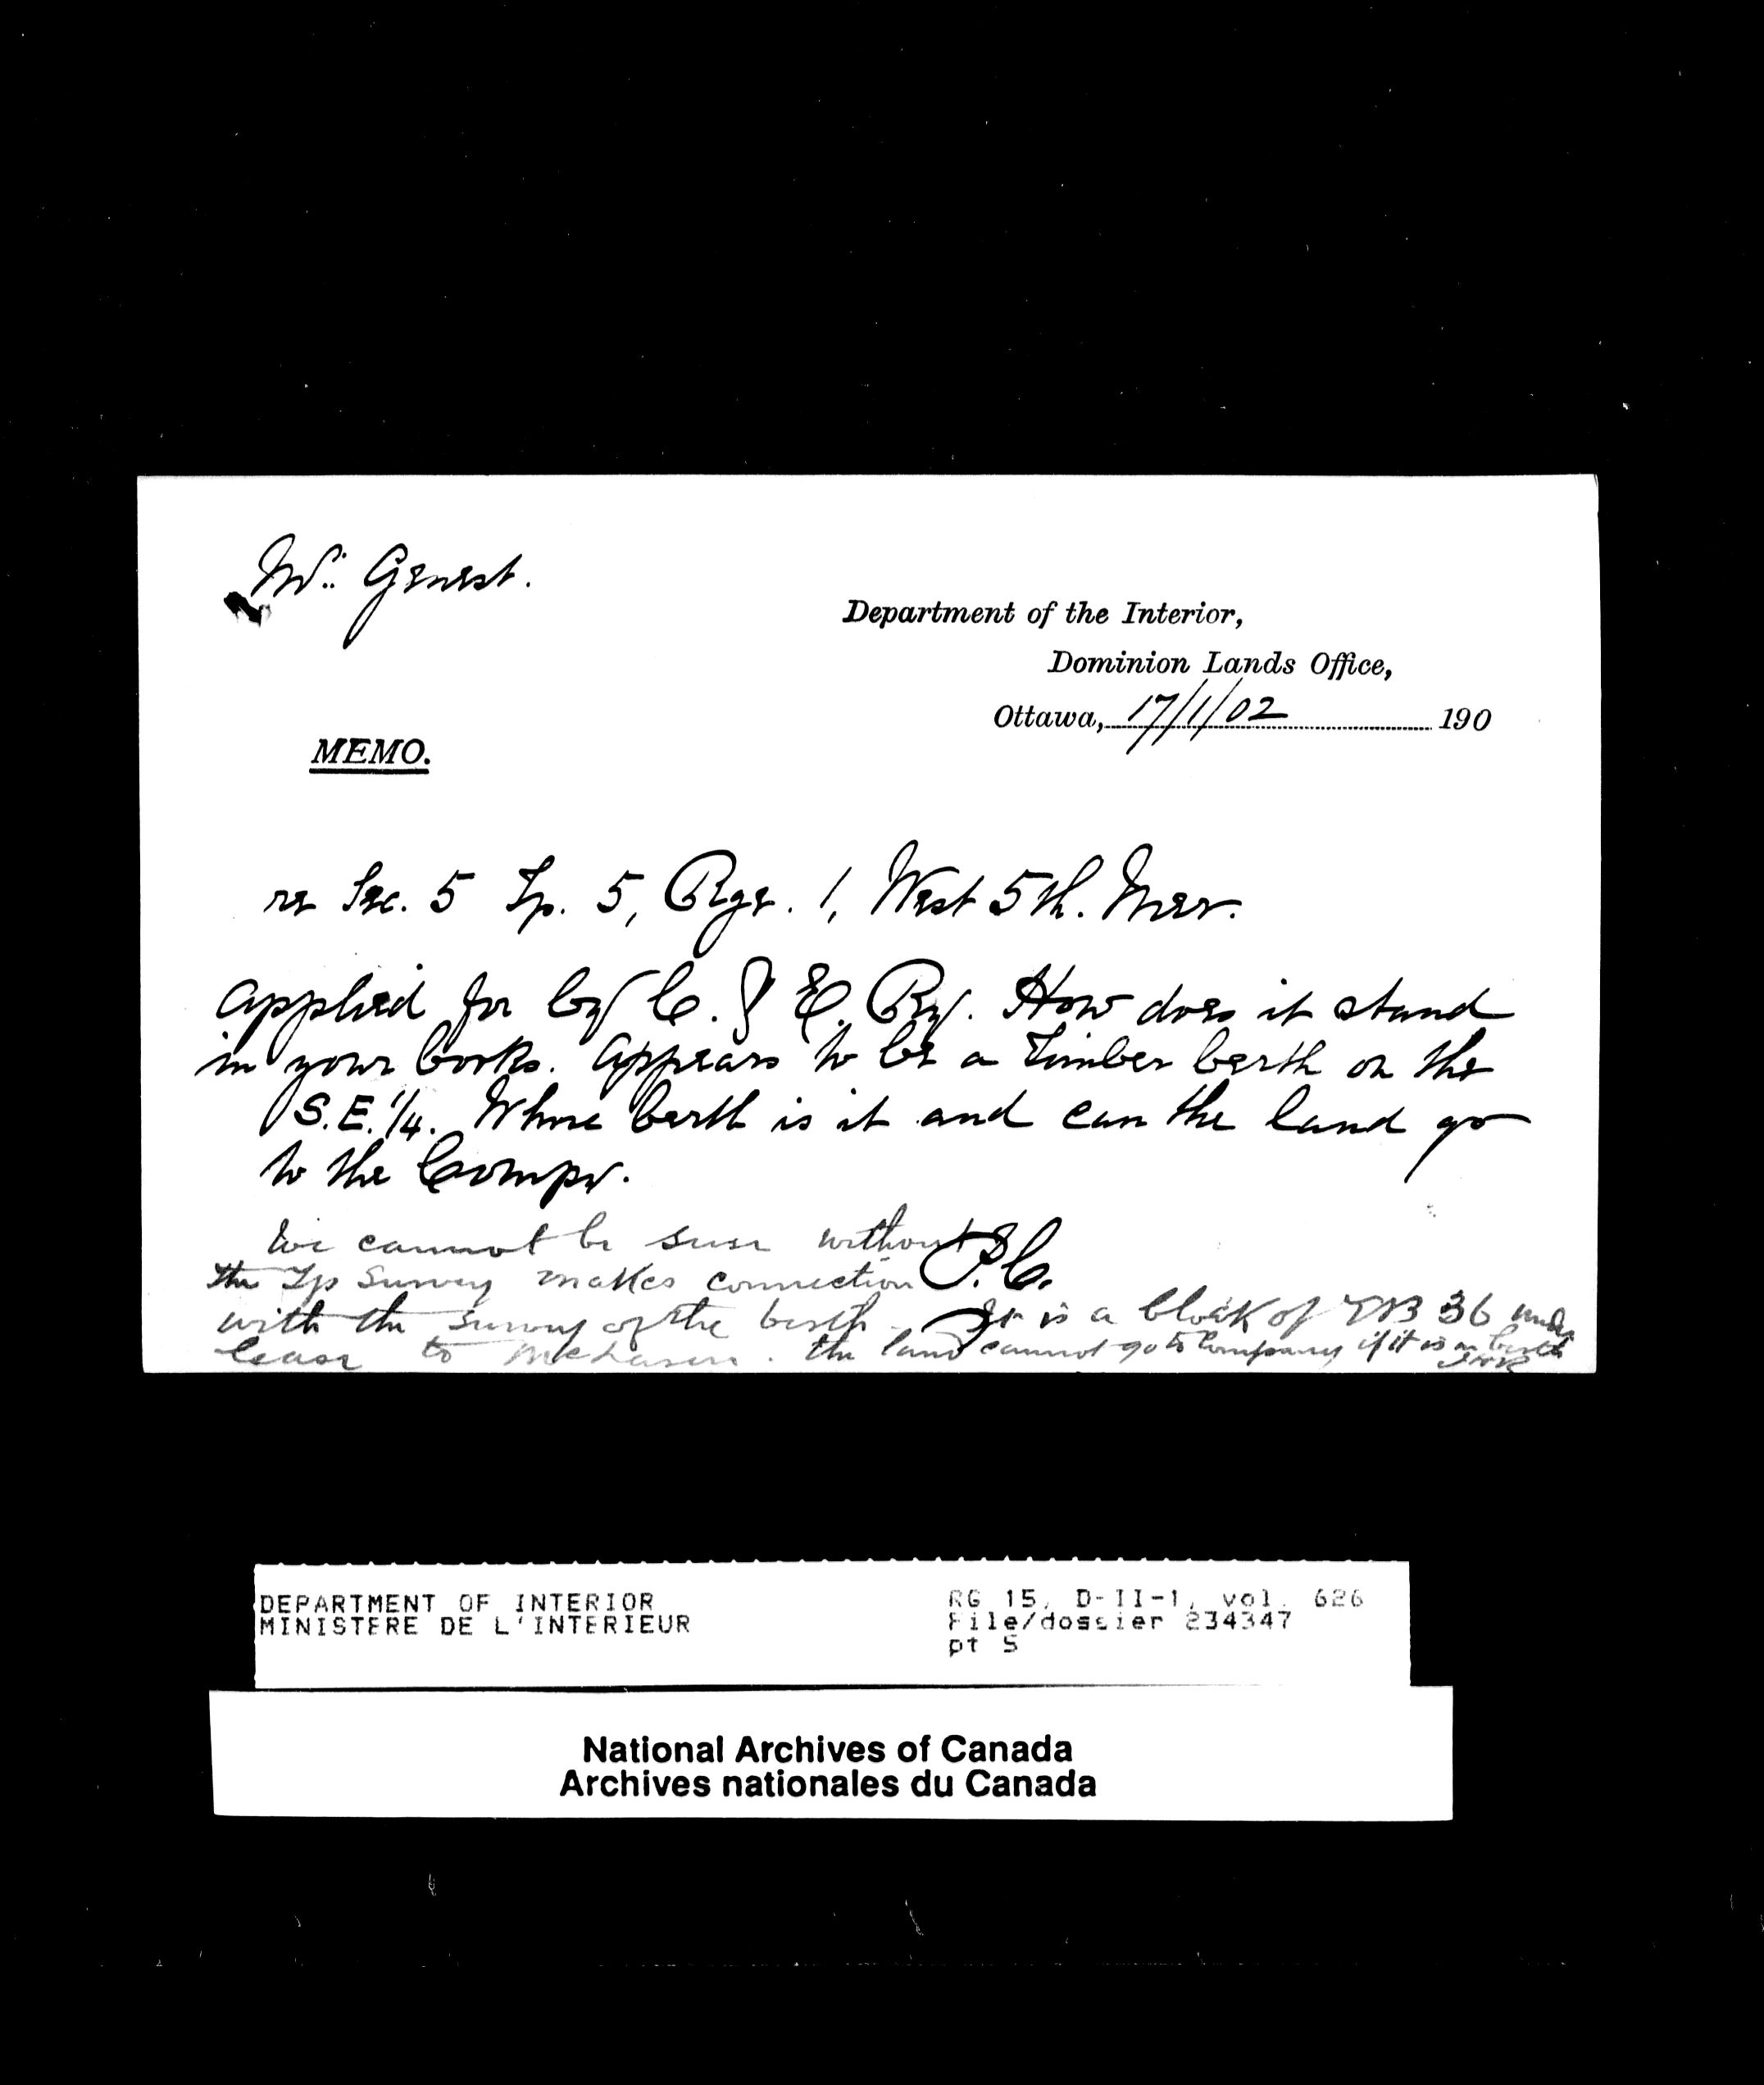 Mr. Genest.
Department of the Interior,
Dominion Lands Office,
Ottawa, 17/1/02 190
MEMO.
re Sec. 5 Tp. 5, Rge. 1, West 5th. Mer.
applied for by C. & E. Ry. How does it stand
in your books. Appears to be a timber berth on the
S.E. 1/4. Whose berth is it and can the land go
to the Compy.
P.C.
We cannot be sure without
the Tp Survey makes connection
with the survey of the berth. It is a block of TB 36 under
lease to McLaren. The land cannot go to Company if it is in berth
DEPARTMENT OF INTERIOR
MINISTERE DE L'INTERIEUR
RG 15, D-II-1, vol. 626
File/dossier 234347
pt 5
National Archives of Canada
Archives nationales du Canada